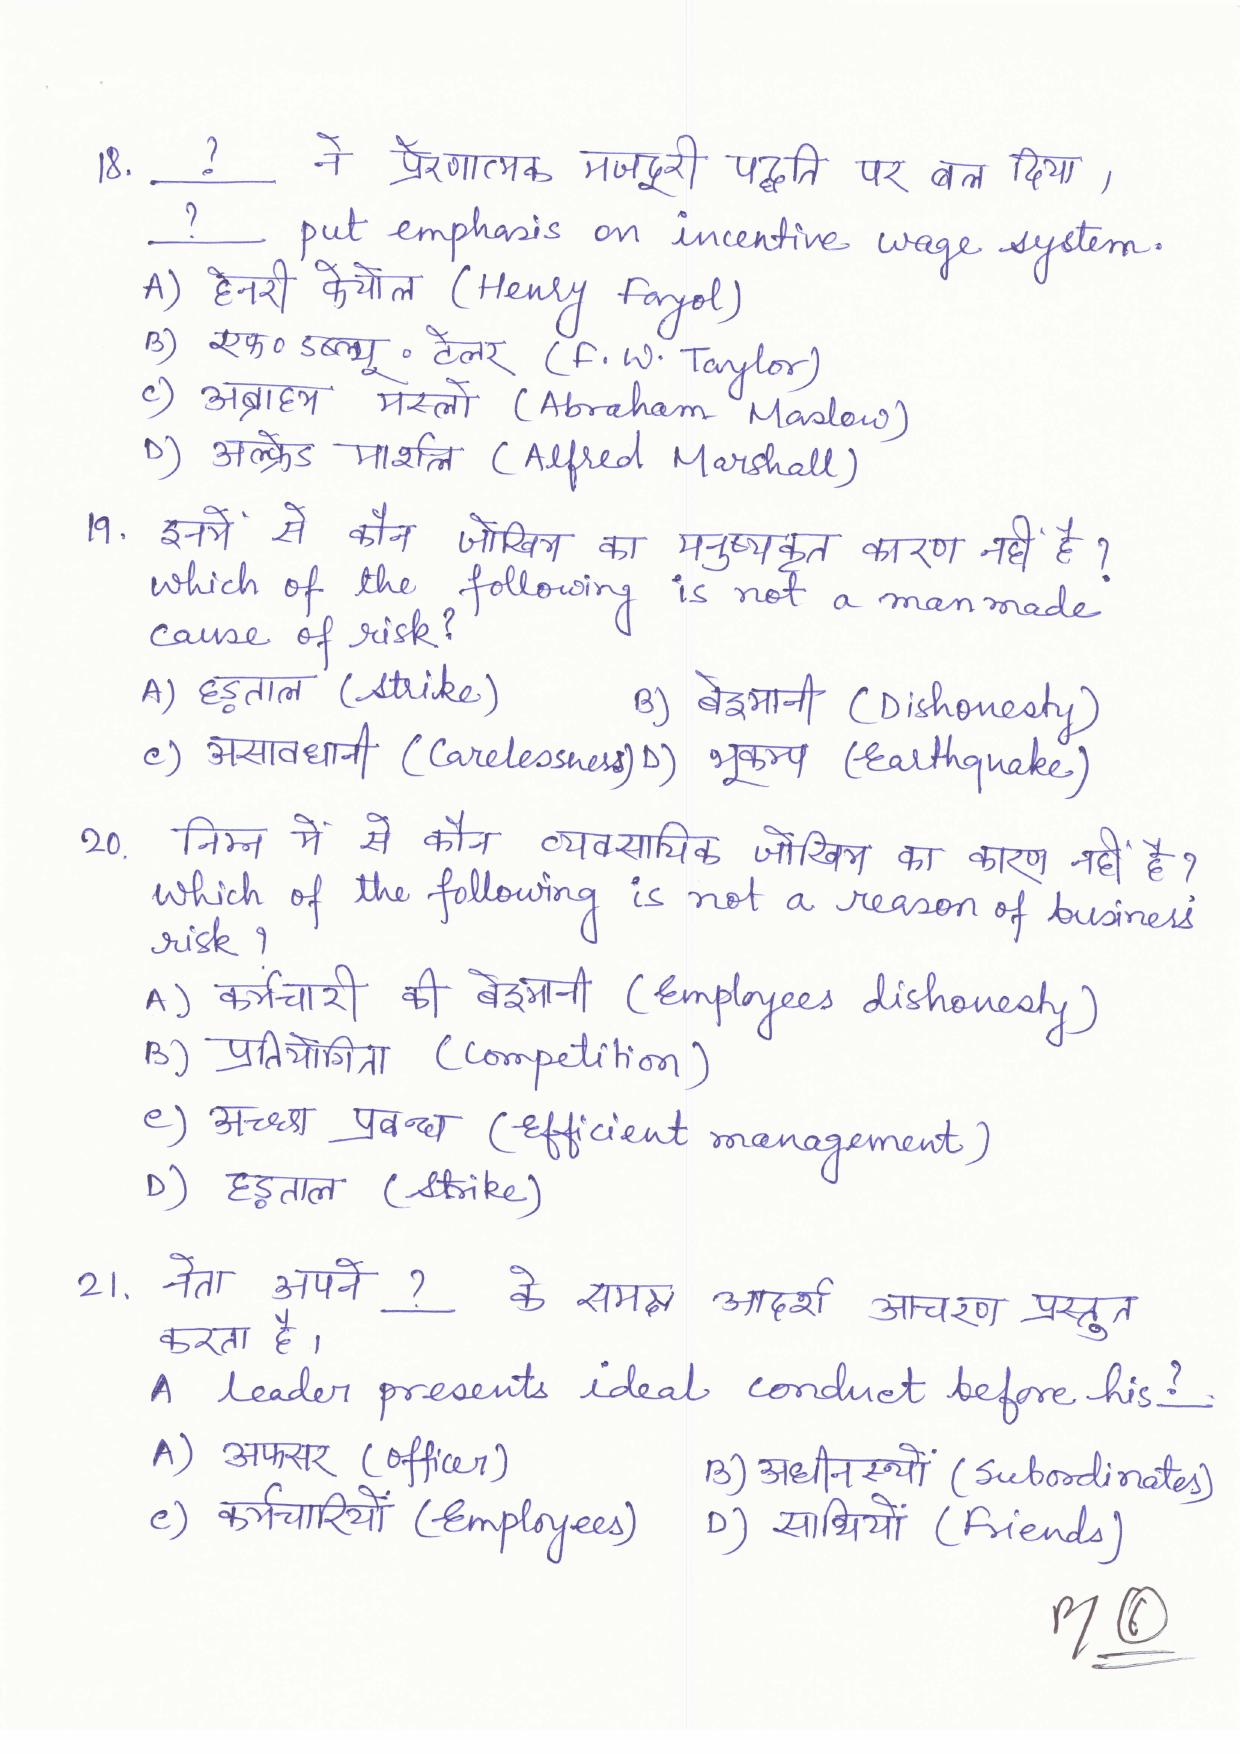 18. ? ने प्रेरणात्मक मजदूरी पद्धति पर बल दिया ।
? put emphasis on incentive wage system.
A) हेनरी फेयोल (Henry Fayol)
B) एफ० डब्ल्यू० टेलर (F. W. Taylor)
C) अब्राहम मेस्लो (Abraham Maslow)
D) अल्फ्रेड मार्शल (Alfred Marshall)
19. इनमें से कौन जोखिम का मनुष्यकृत कारण नहीं है ?
which of the following is not a manmade
cause of risk?
A) हड़ताल (Strike) B) बेइमानी (Dishonesty)
C) असावधानी (Carelessness) D) भूकम्प (Earthquake)
20. निम्न में से कौन व्यवसायिक जोखिम का कारण नहीं है ?
which of the following is not a reason of business
risk ?
A) कर्मचारी की बेइमानी (Employees dishonesty)
B) प्रतियोगिता (Competition)
C) अच्छा प्रबन्ध (Efficient management)
D) हड़ताल (Strike)
21. नेता अपने ? के समक्ष आदर्श आचरण प्रस्तुत
करता है ।
A leader presents ideal conduct before his ? .
A) अफसर (Officer) B) अधीनस्थों (Subordinates)
C) कर्मचारियों (Employees) D) साथियों (Friends)
6